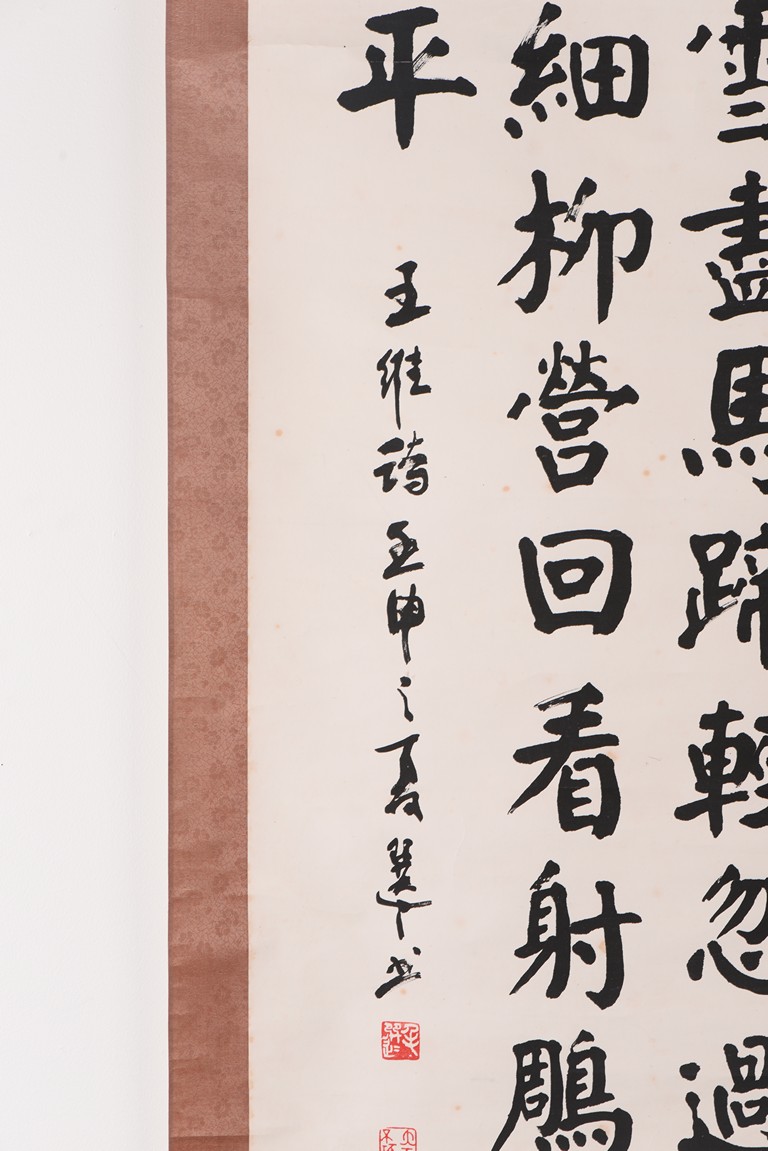 雪盡馬蹄輕忽過
細柳營回看射鵰
平
王維詩壬申之夏選書